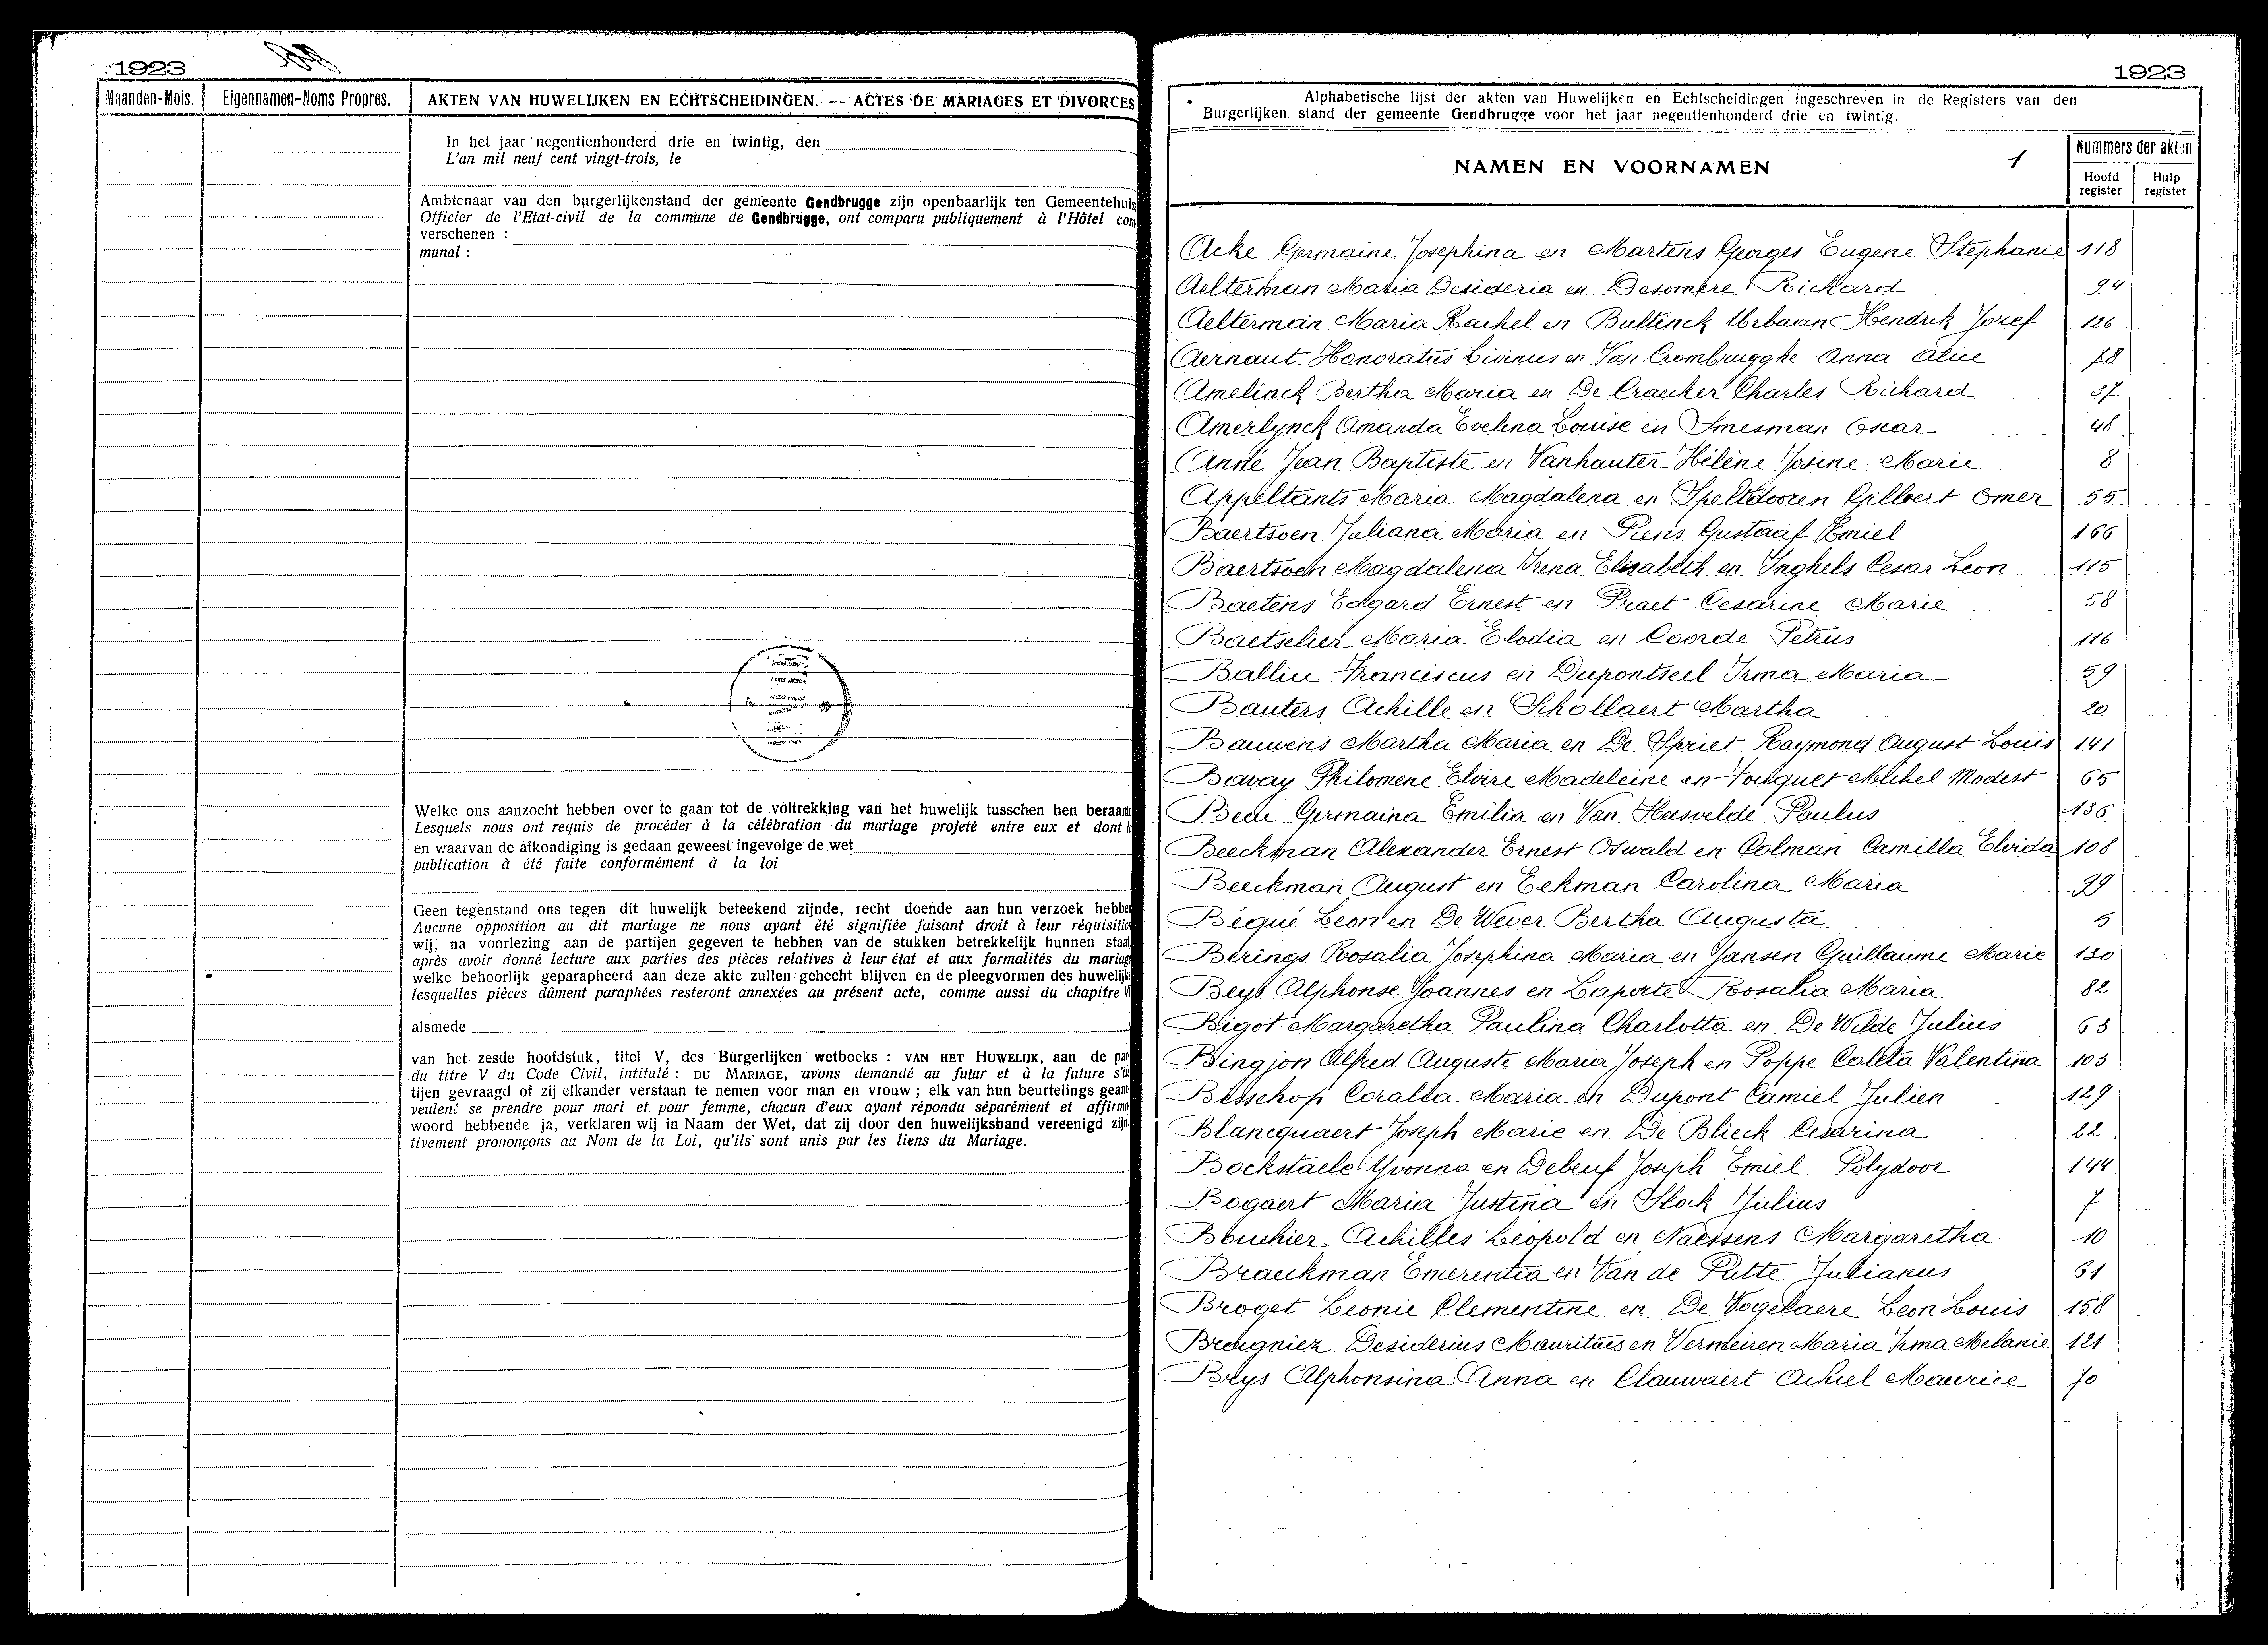 1923
Maanden-Mois.
Eigennamen-Noms Propres.
AKTEN VAN HUWELIJKEN EN ECHTSCHEIDINGEN. — ACTES DE MARIAGES ET DIVORCES
In het jaar negentienhonderd drie en twintig, den
L'an mil neuf cent vingt-trois, le
Ambtenaar van den burgerlijkenstand der gemeente Gendbrugge zijn openbaarlijk ten Gemeentehuiz
Officier de l'Etat-civil de la commune de Gendbrugge, ont comparu publiquement à l'Hôtel com
verschenen :
munal :
Welke ons aanzocht hebben over te gaan tot de voltrekking van het huwelijk tusschen hen beraamd
Lesquels nous ont requis de procéder à la célébration du mariage projeté entre eux et dont l
en waarvan de afkondiging is gedaan geweest ingevolge de wet
publication à été faite conformément à la loi
Geen tegenstand ons tegen dit huwelijk beteekend zijnde, recht doende aan hun verzoek hebbe
Aucune opposition au dit mariage ne nous ayant été signifiée faisant droit à leur réquisitio
wij, na voorlezing aan de partijen gegeven te hebben van de stukken betrekkelijk hunnen staat
après avoir donné lecture aux parties des pièces relatives à leur état et aux formalités du mariag
welke behoorlijk geparapheerd aan deze akte zullen gehecht blijven en de pleegvormen des huwelijk
lesquelles pièces dûment paraphées resteront annexées au présent acte, comme aussi du chapitre V
alsmede
van het zesde hoofdstuk, titel V, des Burgerlijken wetboeks : VAN HET HUWELIJK, aan de par
du titre V du Code Civil, intitulé : DU MARIAGE, avons demandé au futur et à la future s'il
tijen gevraagd of zij elkander verstaan te nemen voor man en vrouw ; elk van hun beurtelings geant
veulent se prendre pour mari et pour femme, chacun d'eux ayant répondu séparément et affirma
woord hebbende ja, verklaren wij in Naam der Wet, dat zij door den huwelijksband vereenigd zijn.
tivement prononçons au Nom de la Loi, qu'ils sont unis par les liens du Mariage.
1923
Alphabetische lijst der akten van Huwelijken en Echtscheidingen ingeschreven in de Registers van den
Burgerlijken stand der gemeente Gendbrugge voor het jaar negentienhonderd drie en twintig.
NAMEN EN VOORNAMEN
1
Nummers der akten
Hoofd register
Hulp register
Acke Germaine Josephina en Martens Georges Eugene Stephanie 118
Aelterman Maria Desideria en Desomere Richard 94
Aelterman Maria Rachel en Bultinck Urbaan Hendrik Jozef 126
Aernaut Honoratus Livinus en Van Crombrugghe Anna Alice 78
Amelinck Bertha Maria en De Craecker Charles Richard 37
Amerlynck Amanda Evelina Louise en Smesman Oscar 48
Anné Jean Baptiste en Vanhauter Hélène Josine Marie 8
Appeltants Maria Magdalena en Speltdooren Gilbert Omer 55
Baertsoen Juliana Maria en Piens Gustaaf Emiel 166
Baertsoen Magdalena Irena Elisabeth en Inghels Cesar Leon 115
Baetens Edgard Ernest en Praet Cesarine Marie 58
Baetselier Maria Elodia en Coorde Petrus 116
Balliu Franciscus en Dupontseel Irma Maria 59
Bauters Achille en Schollaert Martha 20
Bauwens Martha Maria en De Spriet Raymond August Louis 141
Bavay Philomene Elvire Madeleine en Fouquet Michel Modest 65
Germaina Emilia en Van Hesvelde Paulus 136
Beeckman Alexander Ernest Oswald en Colman Camilla Elvida 108
Beeckman August en Eekman Carolina Maria 99
Béqué Leon en De Wever Bertha Augusta 5
Berings Rosalia Josephina Maria en Jansen Guillaume Marie 130
Beys Alphonse Joannes en Laporte Rosalia Maria 82
Bigot Margaretha Paulina Charlotta en De Wilde Julius 63
Bingjon Alfred Auguste Maria Joseph en Poppe Coleta Valentina 103
Bisschop Coralia Maria en Dupont Camiel Julien 129
Blancquaert Joseph Marie en De Blieck Cesarina 22
Bockstaele Yvonna en Debeuf Joseph Emiel Polydoor 144
Bogaert Maria Justina en Stock Julius 7
Bouchier Achilles Leopold en Naessens Margaretha 10
Braeckman Emerentia en Van de Putte Julianus 61
Broget Leonie Clementine en De Vogelaere Leon Louis 158
Breugniez Desiderius Mauritius en Vermeiren Maria Irma Melanie 121
Brys Alphonsina Anna en Clauwaert Achiel Maurice 70